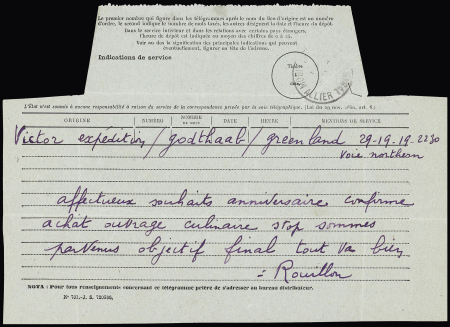 Le premier nombre qui figure dans les télégrammes après le nom du lieu d'origine est un numéro
d'ordre, le second indique le nombre de mots taxés, les autres désignent la date et l'heure du dépôt.
Dans le service intérieur et dans les relations avec certains pays étrangers,
l'heure de dépôt est indiquée au moyen des chiffres de 0 à 24.
Voir au dos la signification des principales indications qui peuvent
éventuellement figurer en tête de l'adresse.
Indications de service
Timbre
ALLIER
L'État n'est soumis à aucune responsabilité à raison du service de la correspondance privée par la voie télégraphique. (Loi du 29 nov. 1850, art. 6.)
ORIGINE NUMÉRO NOMBRE DE MOTS DATE HEURE MENTIONS DE SERVICE
Victor expédition / godthaab / greenland 29-19-19-2230
voie northern
affectueux souhaits anniversaire confirme
achat ouvrage culinaire stop sommes
parvenus objectif final tout va bien
= Rouillon
NOTA : Pour tous renseignements concernant ce télégramme prière de s'adresser au bureau distributeur.
N° 701.-J. S.